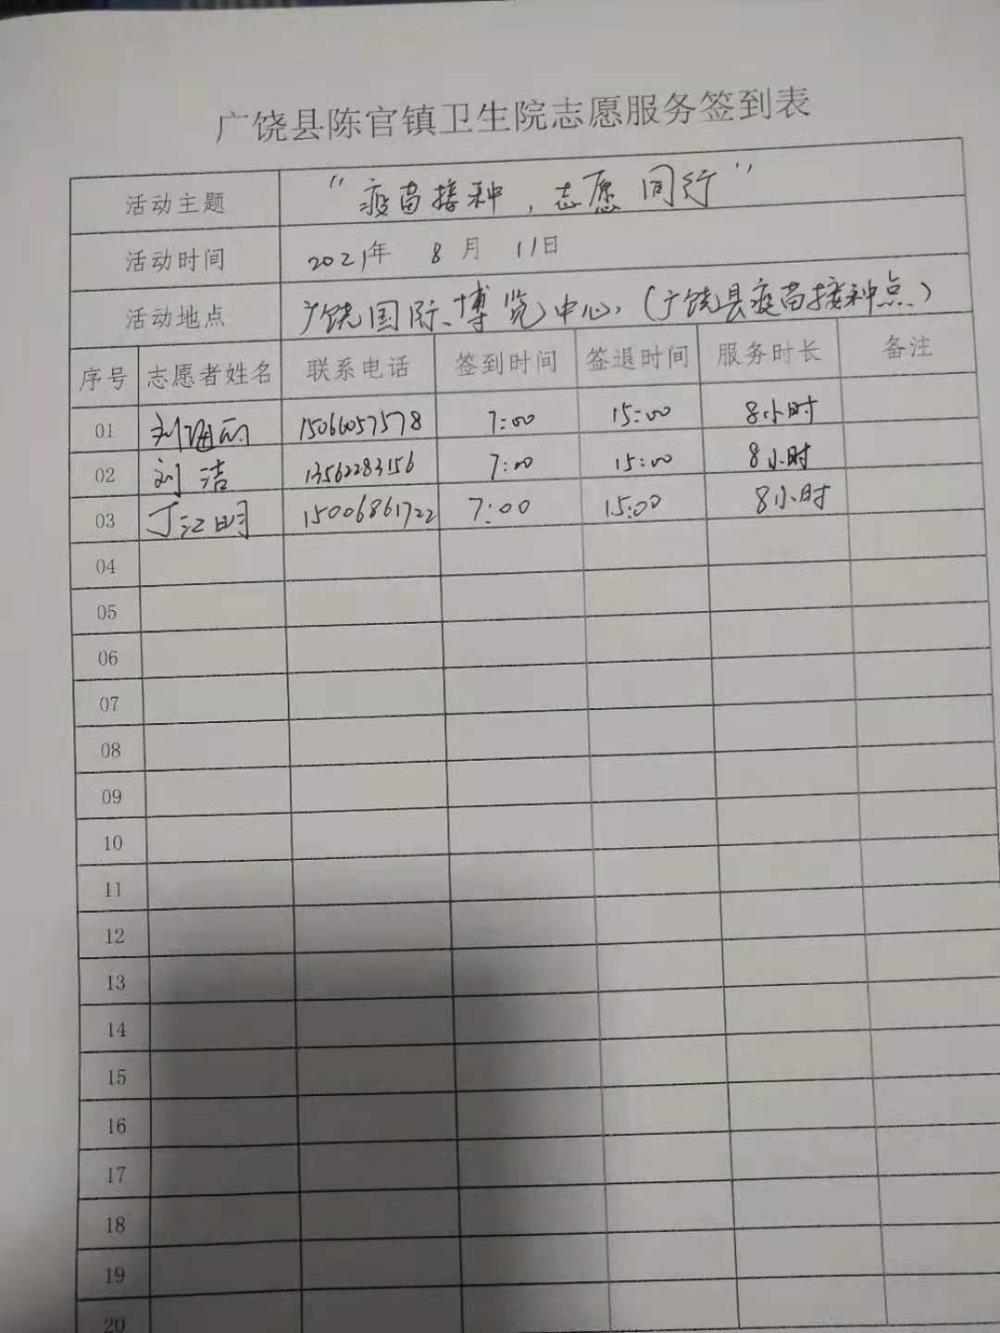 广饶县陈官镇卫生院志愿服务签到表
活动主题 “疫苗接种，志愿同行”
活动时间 2021年 8月 11日
活动地点 广饶国际博览中心（广饶县疫苗接种点）
序号 志愿者姓名 联系电话 签到时间 签退时间 服务时长 备注
01 刘 15066057578 7:00 15:00 8小时
02 刘洁 13562283156 7:00 15:00 8小时
03 丁江明 15006861722 7:00 15:00 8小时
04
05
06
07
08
09
10
11
12
13
14
15
16
17
18
19
20